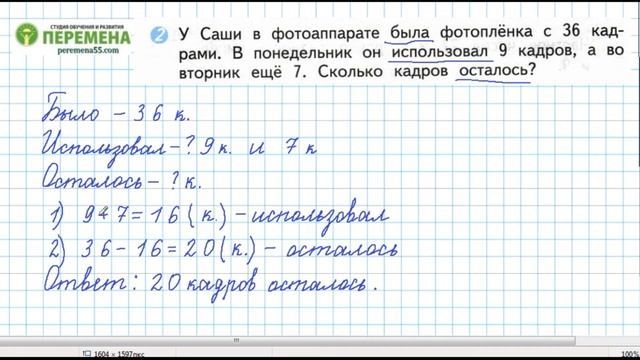 СТУДИЯ ОБУЧЕНИЯ И РАЗВИТИЯ
ПЕРЕМЕНА
peremena55.com
2 У Саши в фотоаппарате была фотоплёнка с 36 кад-
рами. В понедельник он использовал 9 кадров, а во
вторник ещё 7. Сколько кадров осталось?
Было – 36 к.
Использовал – ? 9 к. и 7 к
Осталось – ? к.
1) 9+7=16 (к.) – использовал
2) 36-16=20 (к.) – осталось
Ответ: 20 кадров осталось.
1604 × 1597пкс